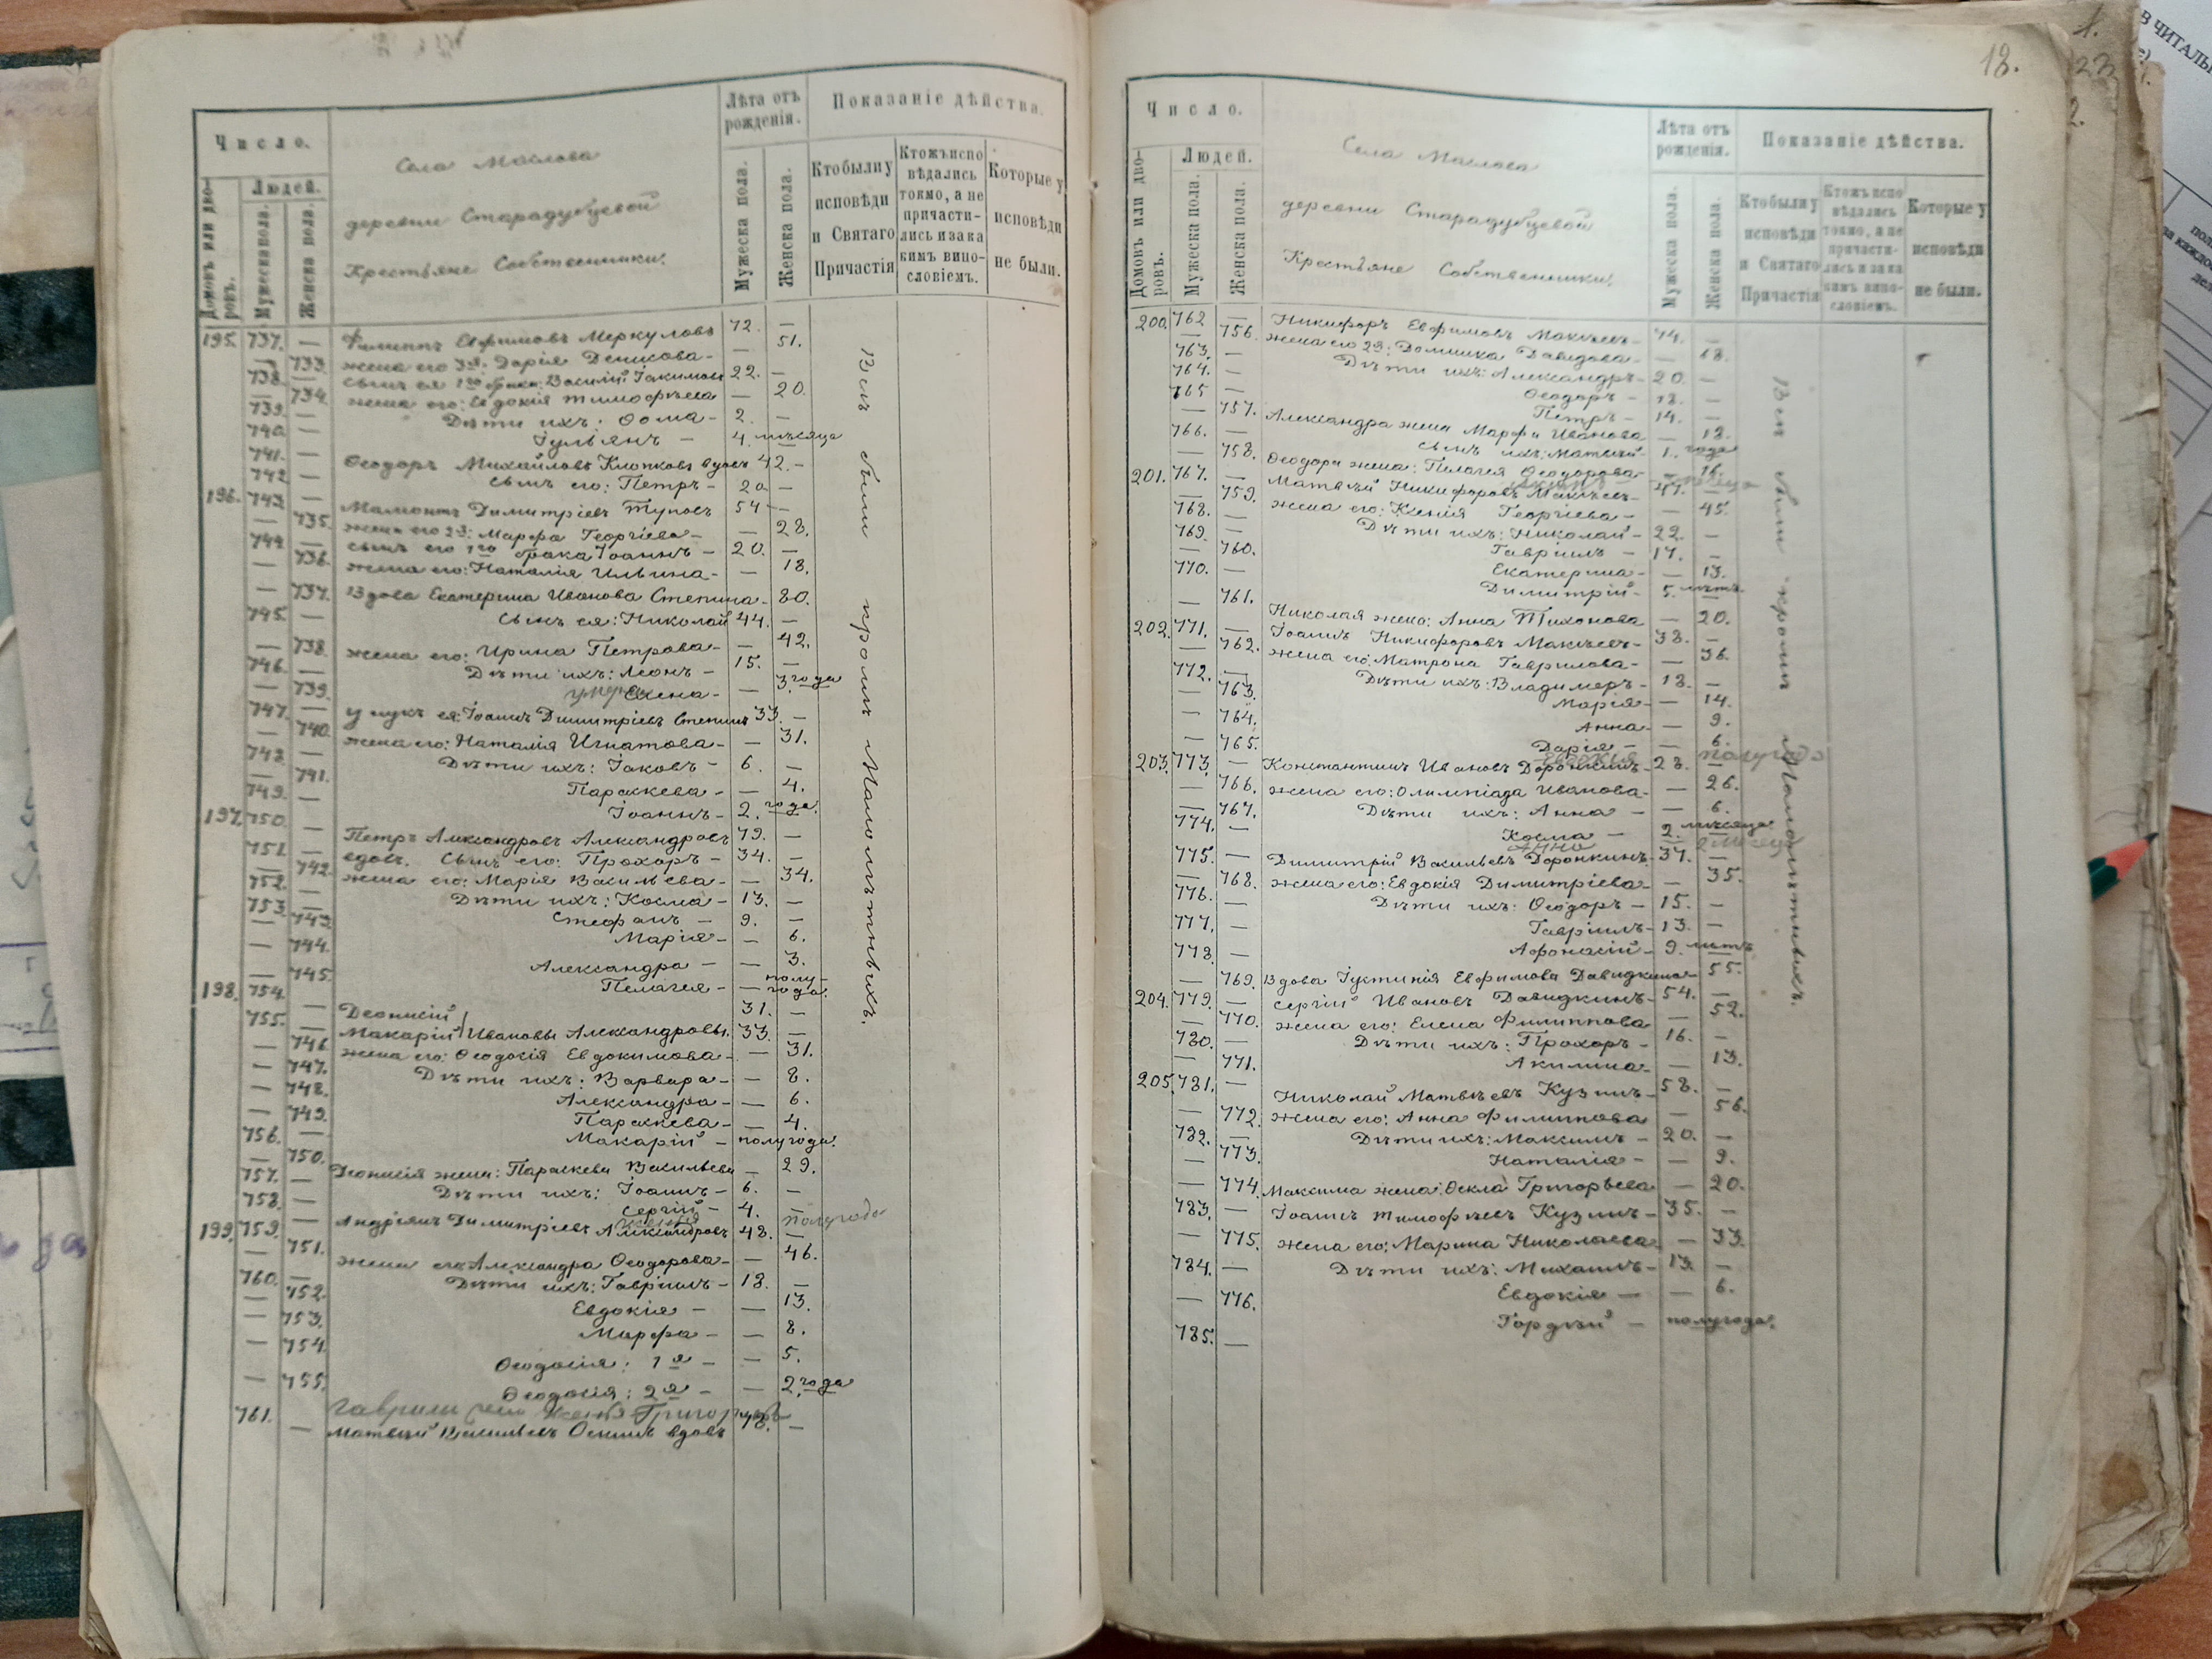 Число.
Домовъ или дворовъ.
Людей.
Мужеска пола.
Женска пола.
Села Маслова
деревни Старадубцевой
Крестьяне Собственники:
Лѣта отъ рожденія.
Мужеска пола.
Женска пола.
Показаніе дѣйства.
Кто были у исповѣди и Святаго Причастія
Ктожъ исповѣдались токмо, а не причастились и за какимъ винословіемъ.
Которые у исповѣди не были.
195. 737. — Филиппъ Евфимовъ Меркуловъ 72. —
— 733. жена его 3я: Дарія Денисова — — 51.
738. — сынъ ея 1го брака: Василій Іакимовъ 22. —
— 734. жена его: Евдокія Тимофѣева — 20.
739. — Дѣти ихъ: Ѳома — 2. —
740. — Іульянъ — 4. мѣсяца
741. — Ѳеодоръ Михайловъ Клопковъ вдовъ 42. —
742. — сынъ его: Петръ — 20 —
196. 743. — Мамонтъ Димитріевъ Туповъ 54 —
— 735. жена его 2я: Марфа Георгіева — — 28.
744. — сынъ его 1го брака Іоаннъ — 20. —
— 736. жена его: Наталія Ильина — — 18.
— 737. Вдова Екатерина Иванова Степина — 80.
745. — Сынъ ея: Николай 44. —
— 738. жена его: Ирина Петрова — — 42.
746. — Дѣти ихъ: Леонъ — 15. —
— 739. Елена — — 3. года
747. — внукъ ея: Іоаннъ Димитріевъ Степинъ 33. —
— 740. жена его: Наталія Игнатова — — 31.
748. — Дѣти ихъ: Іаковъ — 6. —
— 741. Параскева — — 4.
749. — Іоаннъ — 2. года.
197. 750. — Петръ Александровъ Александровъ 79. —
751. — вдовъ. Сынъ его: Прохоръ — 34. —
— 742. жена его: Марія Васильева — — 34.
752. — Дѣти ихъ: Косма — 13. —
753. — Стефанъ — 9. —
— 743. Марія — — 6.
— 744. Александра — — 3.
— 745. Пелагея — — полугода.
198. 754. — Деонисій 31. —
755. — Макарій Ивановы Александровы. 33. —
— 746. жена его: Ѳеодосія Евдокимова — — 31.
— 747. Дѣти ихъ: Варвара — — 8.
— 748. Александра — — 6.
— 749. Параскева — — 4.
756. — Макарій — полугода.
— 750. Деонисія жена: Параскева Васильева — 29.
757. — Дѣти ихъ: Іоаннъ — 6. —
758. — Сергій — 4. —
полугода
199. 759. — Андріянъ Димитріевъ Александровъ 48. —
— 751. жена его: Александра Ѳеодорова — — 46.
760. — Дѣти ихъ: Гавріилъ — 18. —
— 752. Евдокія — — 13.
— 753. Марфа — — 8.
— 754. Ѳеодосія: 1я — — 5.
— 755. Ѳеодосія: 2я — — 2. года
Гавриила жена Григорьева
761. — Матвѣй Васильевъ вдовъ 78. —
Всѣ были кромѣ Малолѣтнихъ.
18.
Число.
Домовъ или дворовъ.
Людей.
Мужеска пола.
Женска пола.
Села Маслова
деревни Старадубцевой
Крестьяне Собственники:
Лѣта отъ рожденія.
Мужеска пола.
Женска пола.
Показаніе дѣйства.
Кто были у исповѣди и Святаго Причастія
Ктожъ исповѣдались токмо, а не причастились и за какимъ винословіемъ.
Которые у исповѣди не были.
200. 762 — Никифоръ Евфимовъ Макѣевъ — 44. —
— 756. жена его 2я: Домника Давидова — — 18.
763. — Дѣти ихъ: Александръ — 20. —
764. — Ѳеодоръ — 18. —
765 — Петръ — 14. —
— 757. Александра жена Марфа Иванова — 18.
766. — сынъ ихъ: Матвѣй — 1. года
— 758. Ѳеодора жена: Пелагея Ѳеодорова — 16.
201. 767. — Матвѣй Никифоровъ Макѣевъ — 47. —
— 759. жена его: Ксенія Георгіева — — 45.
768. — Дѣти ихъ: Николай — 22. —
769. — Гавріилъ — 17. —
— 760. Екатерина — — 13.
770. — Димитрій — 5. лѣтъ
— 761. Николая жена: Анна Тихонова — 20.
202. 771. — Іоаннъ Никифоровъ Макѣевъ — 38. —
— 762. жена его: Матрона Гаврилова — — 36.
772. — Дѣти ихъ: Владимеръ — 18. —
— 763. Марія — — 14.
— 764. Анна — — 9.
— 765. Дарія — — 6.
полугода
203. 773. — Константинъ Ивановъ Доронкинъ — 28. —
— 766. жена его: Олимпіада Иванова — — 26.
— 767. Дѣти ихъ: Анна — — 6.
774. — Косма — 2. мѣсяца
Анна
775. — Димитрій Васильевъ Доронкинъ — 37. —
— 768. жена его: Евдокія Димитріева — — 35.
776. — Дѣти ихъ: Ѳеодоръ — 15. —
777. — Гавріилъ — 13. —
778. — Афонасій — 9. лѣтъ
— 769. Вдова Іустинія Евфимова Давидкина — 55.
204. 779. — Сергій Ивановъ Давидкинъ — 54. —
— 770. жена его: Елена Филиппова — 52.
780. — Дѣти ихъ: Прохоръ — 16. —
— 771. Акилина — — 13.
205. 781. — Николай Матвѣевъ Кузинъ — 58. —
— 772. жена его: Анна Филиппова — 56.
782. — Дѣти ихъ: Максимъ — 20. —
— 773. Наталія — — 9.
— 774. Максима жена: Ѳекла Григорьева — 20.
783. — Іоаннъ Тимофѣевъ Кузинъ — 35. —
— 775. жена его: Марина Николаева — 33.
784. — Дѣти ихъ: Михаилъ — 13. —
— 776. Евдокія — — 6.
785. — Гордѣй — полугода.
Всѣ были кромѣ Малолѣтнихъ.